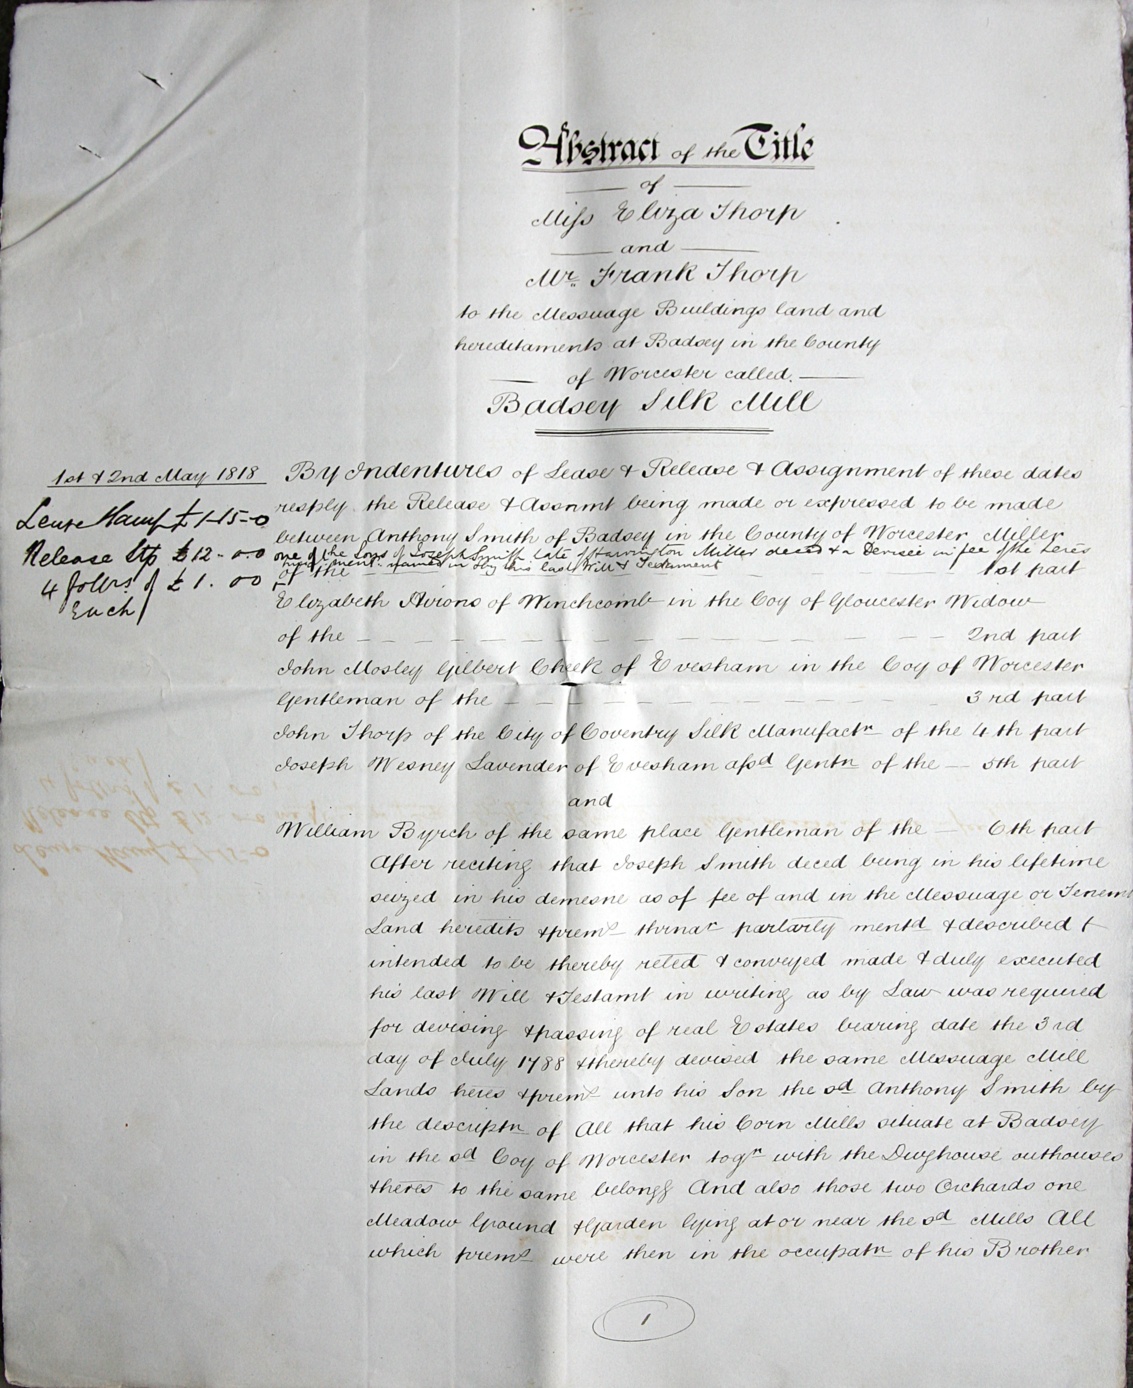 Abstract of the Title
of
Miss Eliza Thorp
and
Mr. Frank Thorp
to the Messuage Buildings land and
hereditaments at Badsey in the County
of Worcester called.
Badsey Silk Mill
1st & 2nd May 1818
Lease Stamp £1-15-0
Release Stp £12-0-0
4 follrs. of £1. 00
Each
By Indentures of Lease & Release & Assignment of these dates
resply the Release & Assnmt being made or expressed to be made
between Anthony Smith of Badsey in the County of Worcester Miller
one of the Sons of Joseph Smith late of Harvington Miller deced & a Devisee in fee of the heres
ment named in & by his last Will & Testament
of the 1st part
Elizabeth Avions of Winchcomb in the Coy of Gloucester Widow
of the 2nd part
John Mosley Gilbert Cheek of Evesham in the Coy of Worcester
Gentleman of the 3rd part
John Thorp of the City of Coventry Silk Manufactr of the 4th part
Joseph Wesney Lavender of Evesham afsd Gentn of the 5th part
and
William Byrch of the same place Gentleman of the 6th part
After reciting that Joseph Smith deced being in his lifetime
seized in his demesne as of fee of and in the Messuage or Tenemt
Land heredits & prems thrnar partarly mentd & described &
intended to be thereby reled & conveyed made & duly executed
his last Will & Testamt in writing as by Law was required
for devising & passing of real Estates bearing date the 3rd
day of July 1788 & thereby devised the same Messuage Mill
Lands heres & prems unto his Son the sd Anthony Smith by
the descriptn of All that his Corn Mills situate at Badsey
in the sd Coy of Worcester togr with the Dwghouse outhouses
& heres to the same belongg And also those two Orchards one
Meadow Ground & Garden lying at or near the sd Mills All
which prems were then in the occupatn of his Brother
1